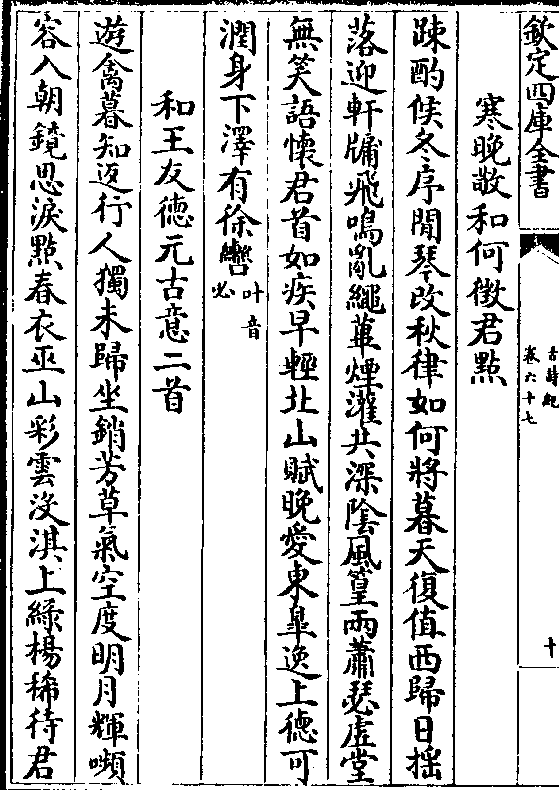 欽定四庫全書
古詩紀
卷六十七
十
寒晚敬和何徵君㸃
踈酌候冬序閒琴改秋律如何將暮天復值西歸日揺
落迎軒牖飛鳴亂繩蓽煙灌共深陰風篁兩蕭瑟虛堂
無笑語懷君首如疾早輕北山賦晚愛東臯逸上德可
潤身下澤有徐轡叶音必
和王友徳元古意二首
遊禽暮知返行人獨未歸坐銷芳草氣空度明月輝嚬
容入朝鏡思淚㸃春衣巫山彩雲沒淇上綠楊稀待君